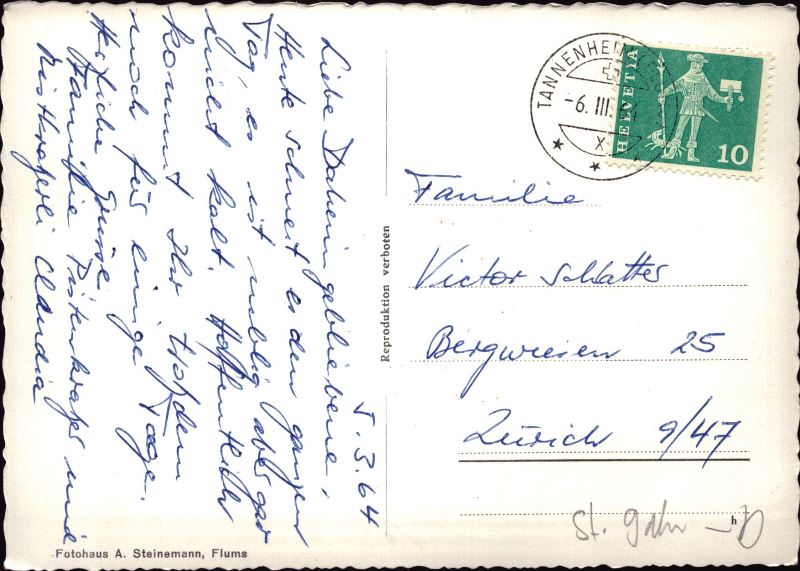 5.3.64
Liebe Daheimgebliebene,
Heute schneit es den ganzen
Tag, es ist neblig aber gar
nicht kalt. Hoffentlich
kommt Ihr trotzdem
noch für einige Tage.
Herzliche Grüsse
Familie Pistenkratzer und
Claudia
Reproduktion verboten
TANNENHEIM
-6. III. 64
X
HELVETIA
10
Familie
Victor Schlatter
Bergwiesen 25
Zürich 9/47
St. Galn
h
Fotohaus A. Steinemann, Flums